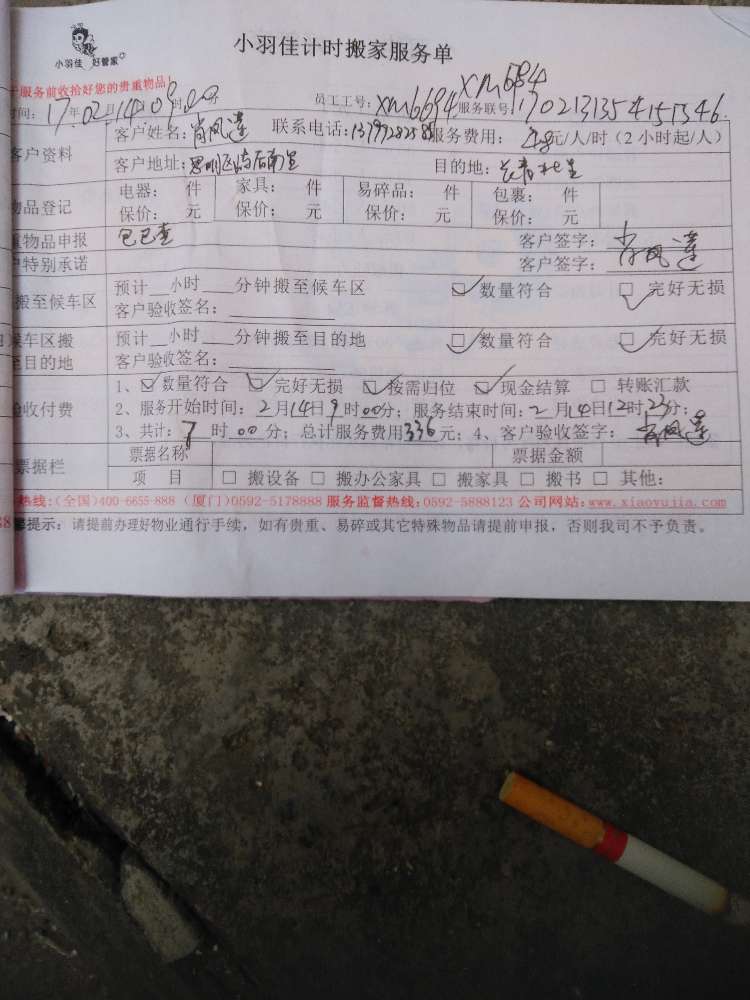 小羽佳 好管家
小羽佳计时搬家服务单
服务前收拾好您的贵重物品!
XM684
时间: 17年02月14日09时00分 员工工号: XM6694 服务联号: 1702131354151346
客户资料
客户姓名: 肖凤莲 联系电话: 服务费用: 48元/人/时(2小时起/人)
客户地址: 思明区 目的地:
物品登记
电器: 件 家具: 件 易碎品: 件 包裹: 件
保价: 元 保价: 元 保价: 元 保价: 元
重物品申报 已已查 客户签字: 肖凤莲
户特别承诺 客户签字:
搬至候车区
预计__小时___分钟搬至候车区 ☑数量符合 ☑完好无损
客户验收签名:
候车区搬至目的地
预计__小时___分钟搬至目的地 ☑数量符合 ☑完好无损
客户验收签名:
验收付费
1、☑数量符合 ☑完好无损 ☑按需归位 ☑现金结算 □转账汇款
2、服务开始时间: 2月14日9时00分; 服务结束时间: 2月14日12时23分;
3、共计: 7时00分; 总计服务费用336元; 4、客户验收签字: 肖凤莲
票据栏
票据名称 票据金额
项 目 □ 搬设备 □ 搬办公家具 □ 搬家具 □ 搬书 □ 其他:
热线:(全国)400-6655-888 (厦门)0592-5178888 服务监督热线:0592-5888123 公司网站:www.xiaoyujia.com
提示: 请提前办理好物业通行手续,如有贵重、易碎或其它特殊物品请提前申报,否则我司不予负责。